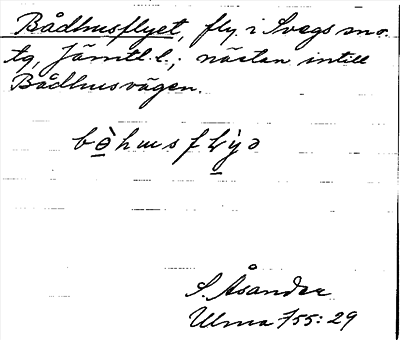 Bådhusflyet, fly i Svegs sn o.
tg, Jämtl. l.; nästan intill
Bådhusvägen.
bòhusflỳə
S. Åsander
Ulma 755:29